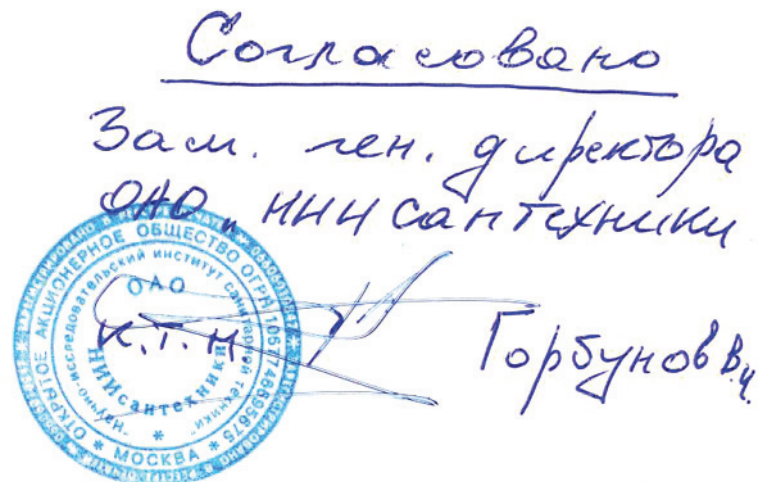 Согласовано
Зам. ген. директора
ОАО „ НИИ сантехники
к.т.н Горбунов В.И.
ОТКРЫТОЕ АКЦИОНЕРНОЕ ОБЩЕСТВО ОГРН 1057746695675
* МОСКВА *
"Научно-исследовательский институт санитарной техники"
ОАО
НИИсантехники
*